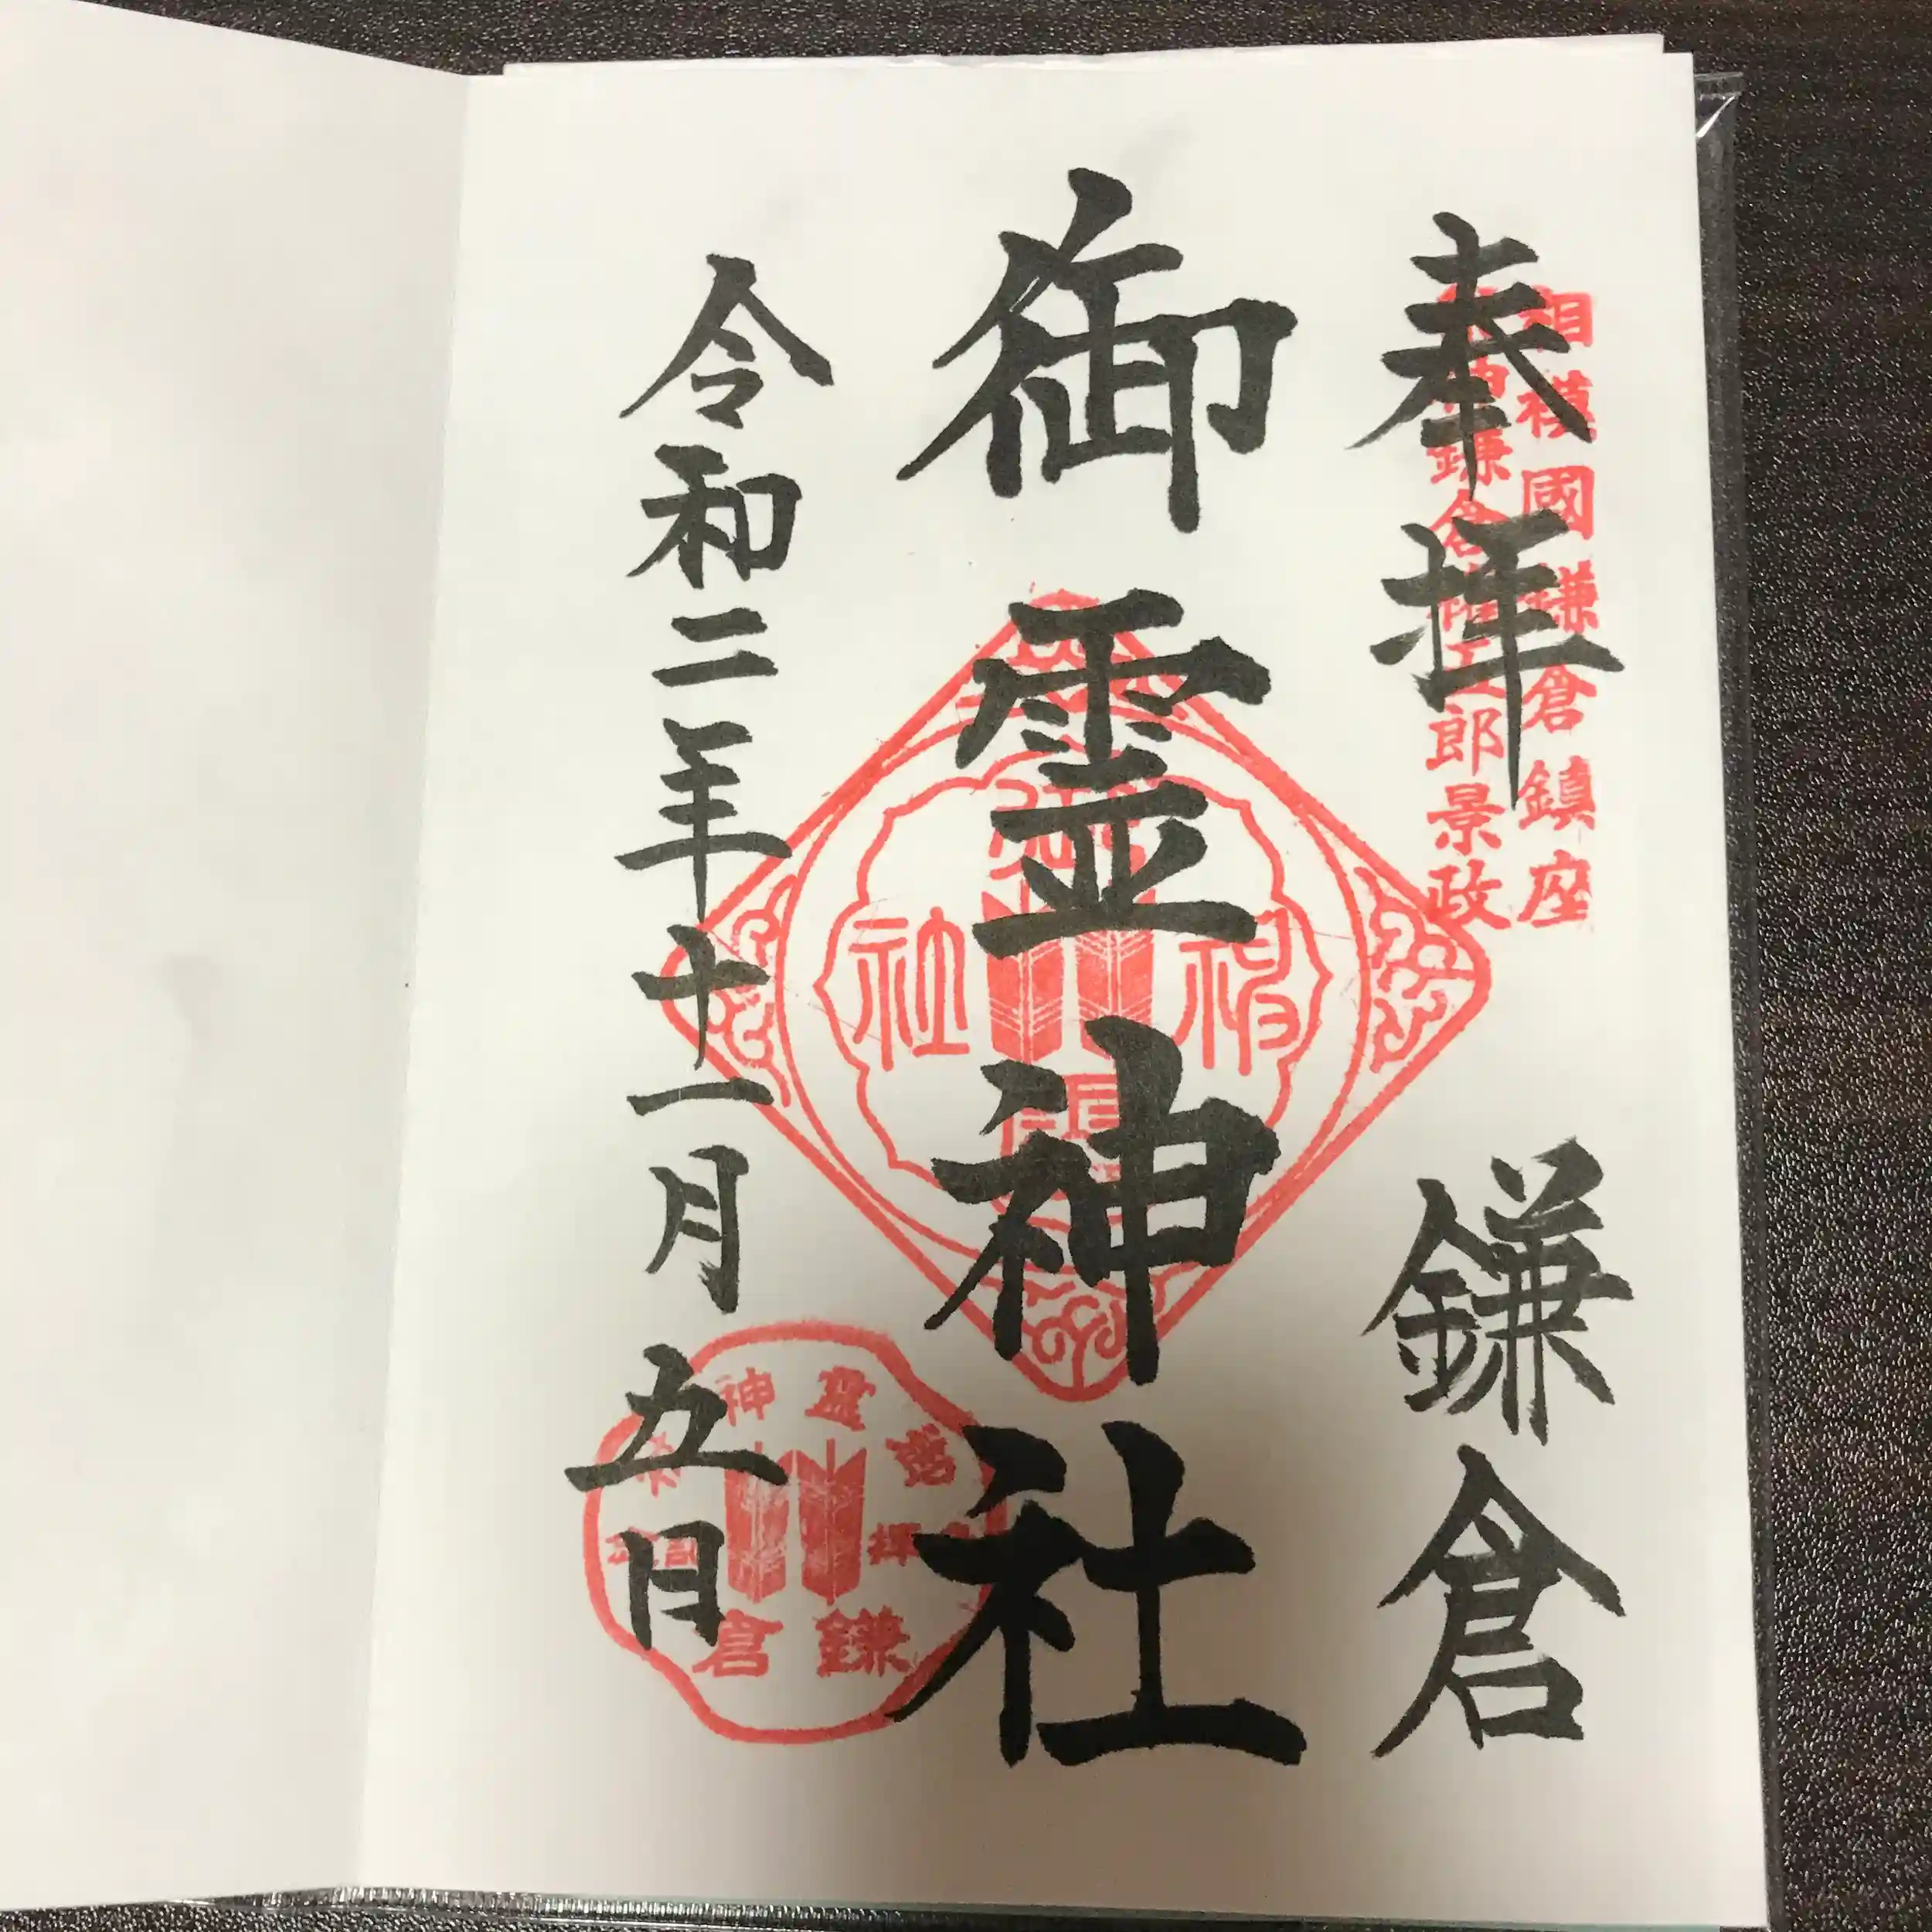 奉拝 鎌倉
相模國鎌倉鎮座
鎌倉権五郎景政
御霊神社
令和二年十一月五日
神社
御霊神社
鎌倉